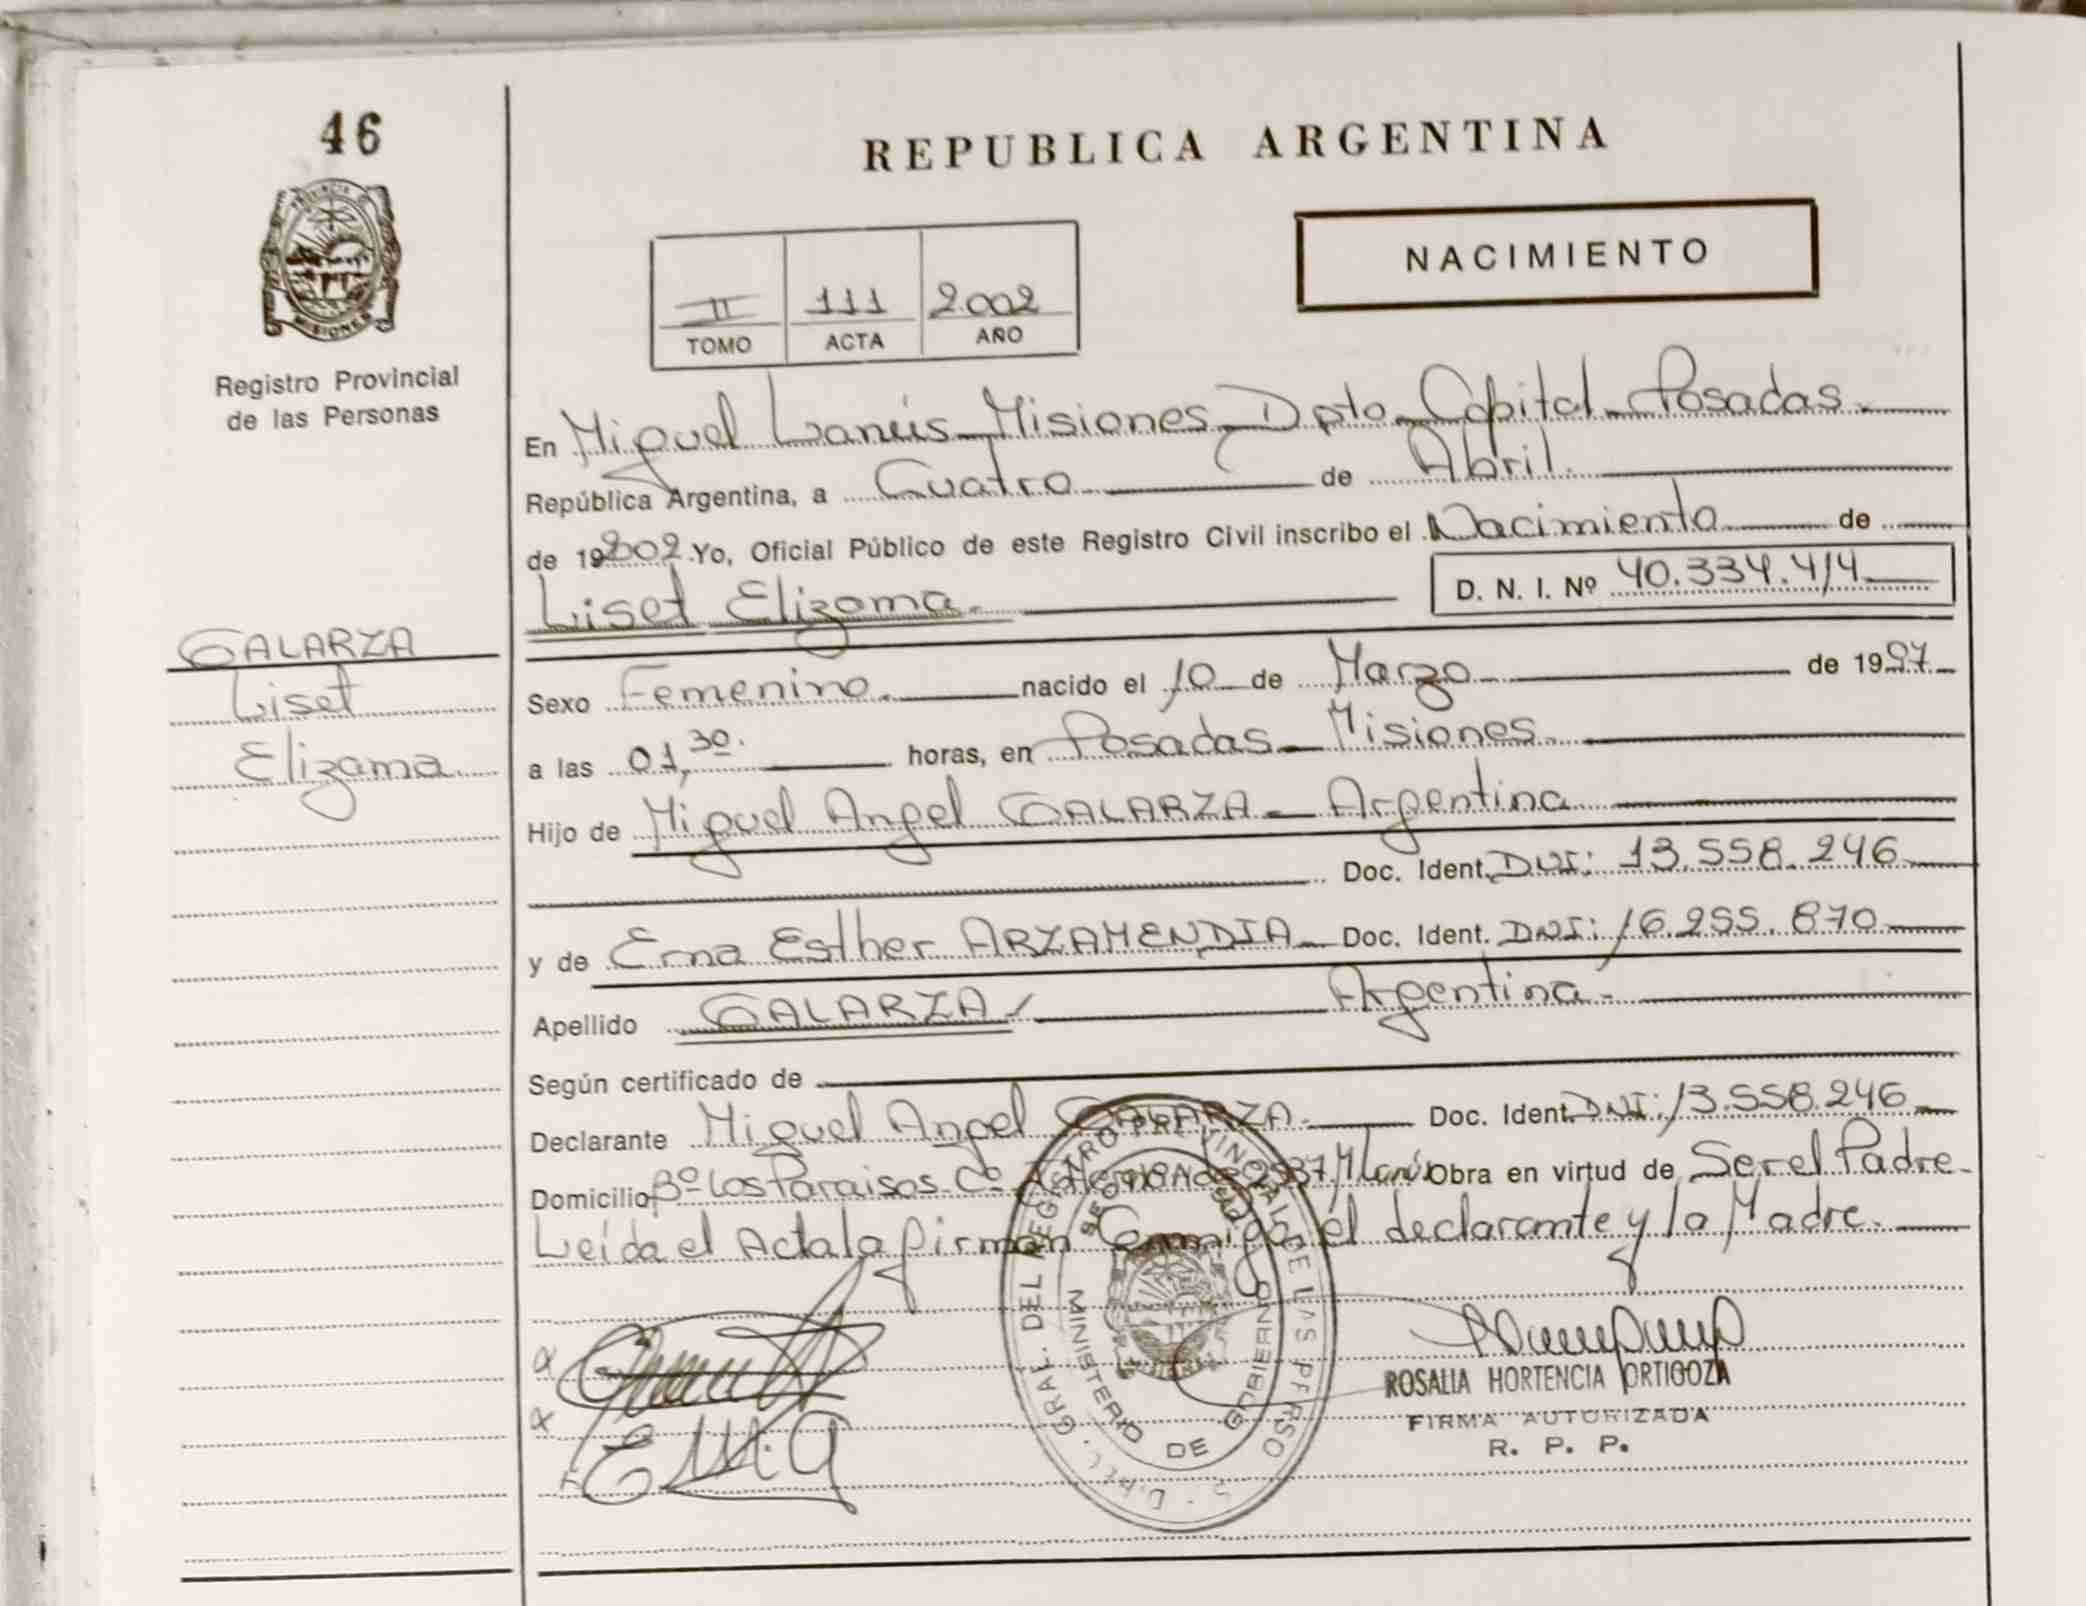 46
PROVINCIA DE
MISIONES
Registro Provincial
de las Personas
GALARZA
Liset
Elizama
REPUBLICA ARGENTINA
NACIMIENTO
II 111 2.002
TOMO ACTA AÑO
En Miguel Lanús Misiones, Dpto. Capital Posadas.
República Argentina, a Cuatro de Abril.
de 19 2002. Yo, Oficial Público de este Registro Civil inscribo el Nacimiento de
Liset Elizama. D. N. I. Nº 40.334.414
Sexo Femenino. nacido el 10 de Marzo de 1997.
a las 01,30. horas, en Posadas Misiones.
Hijo de Miguel Angel GALARZA Argentina
Doc. Ident. DNI: 13.558.246
y de Erna Esther ARZAMENDIA Doc. Ident. DNI: 16.255.870
Apellido GALARZA Argentina.
Según certificado de
Declarante Miguel Angel GALARZA. Doc. Ident. DNI: 13.558.246
Domicilio Bº Los Paraisos Cº 2537 Obra en virtud de Ser el Padre
Leída el Acta la firman Conmigo él declarante y la Madre.
DEL REGISTRO PROVINCIAL DE LAS PERSO
MINISTERIO DE GOBIERNO
ROSALIA HORTENCIA ORTIGOZA
FIRMA AUTORIZADA
R. P. P.